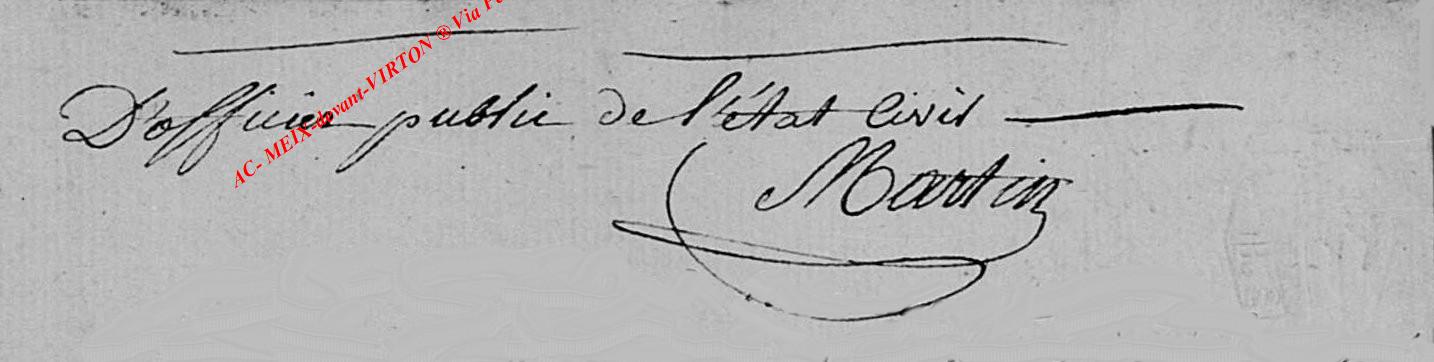 D'officier public de l'état Civil
Martin
AC- MEIX-devant-VIRTON ® Via